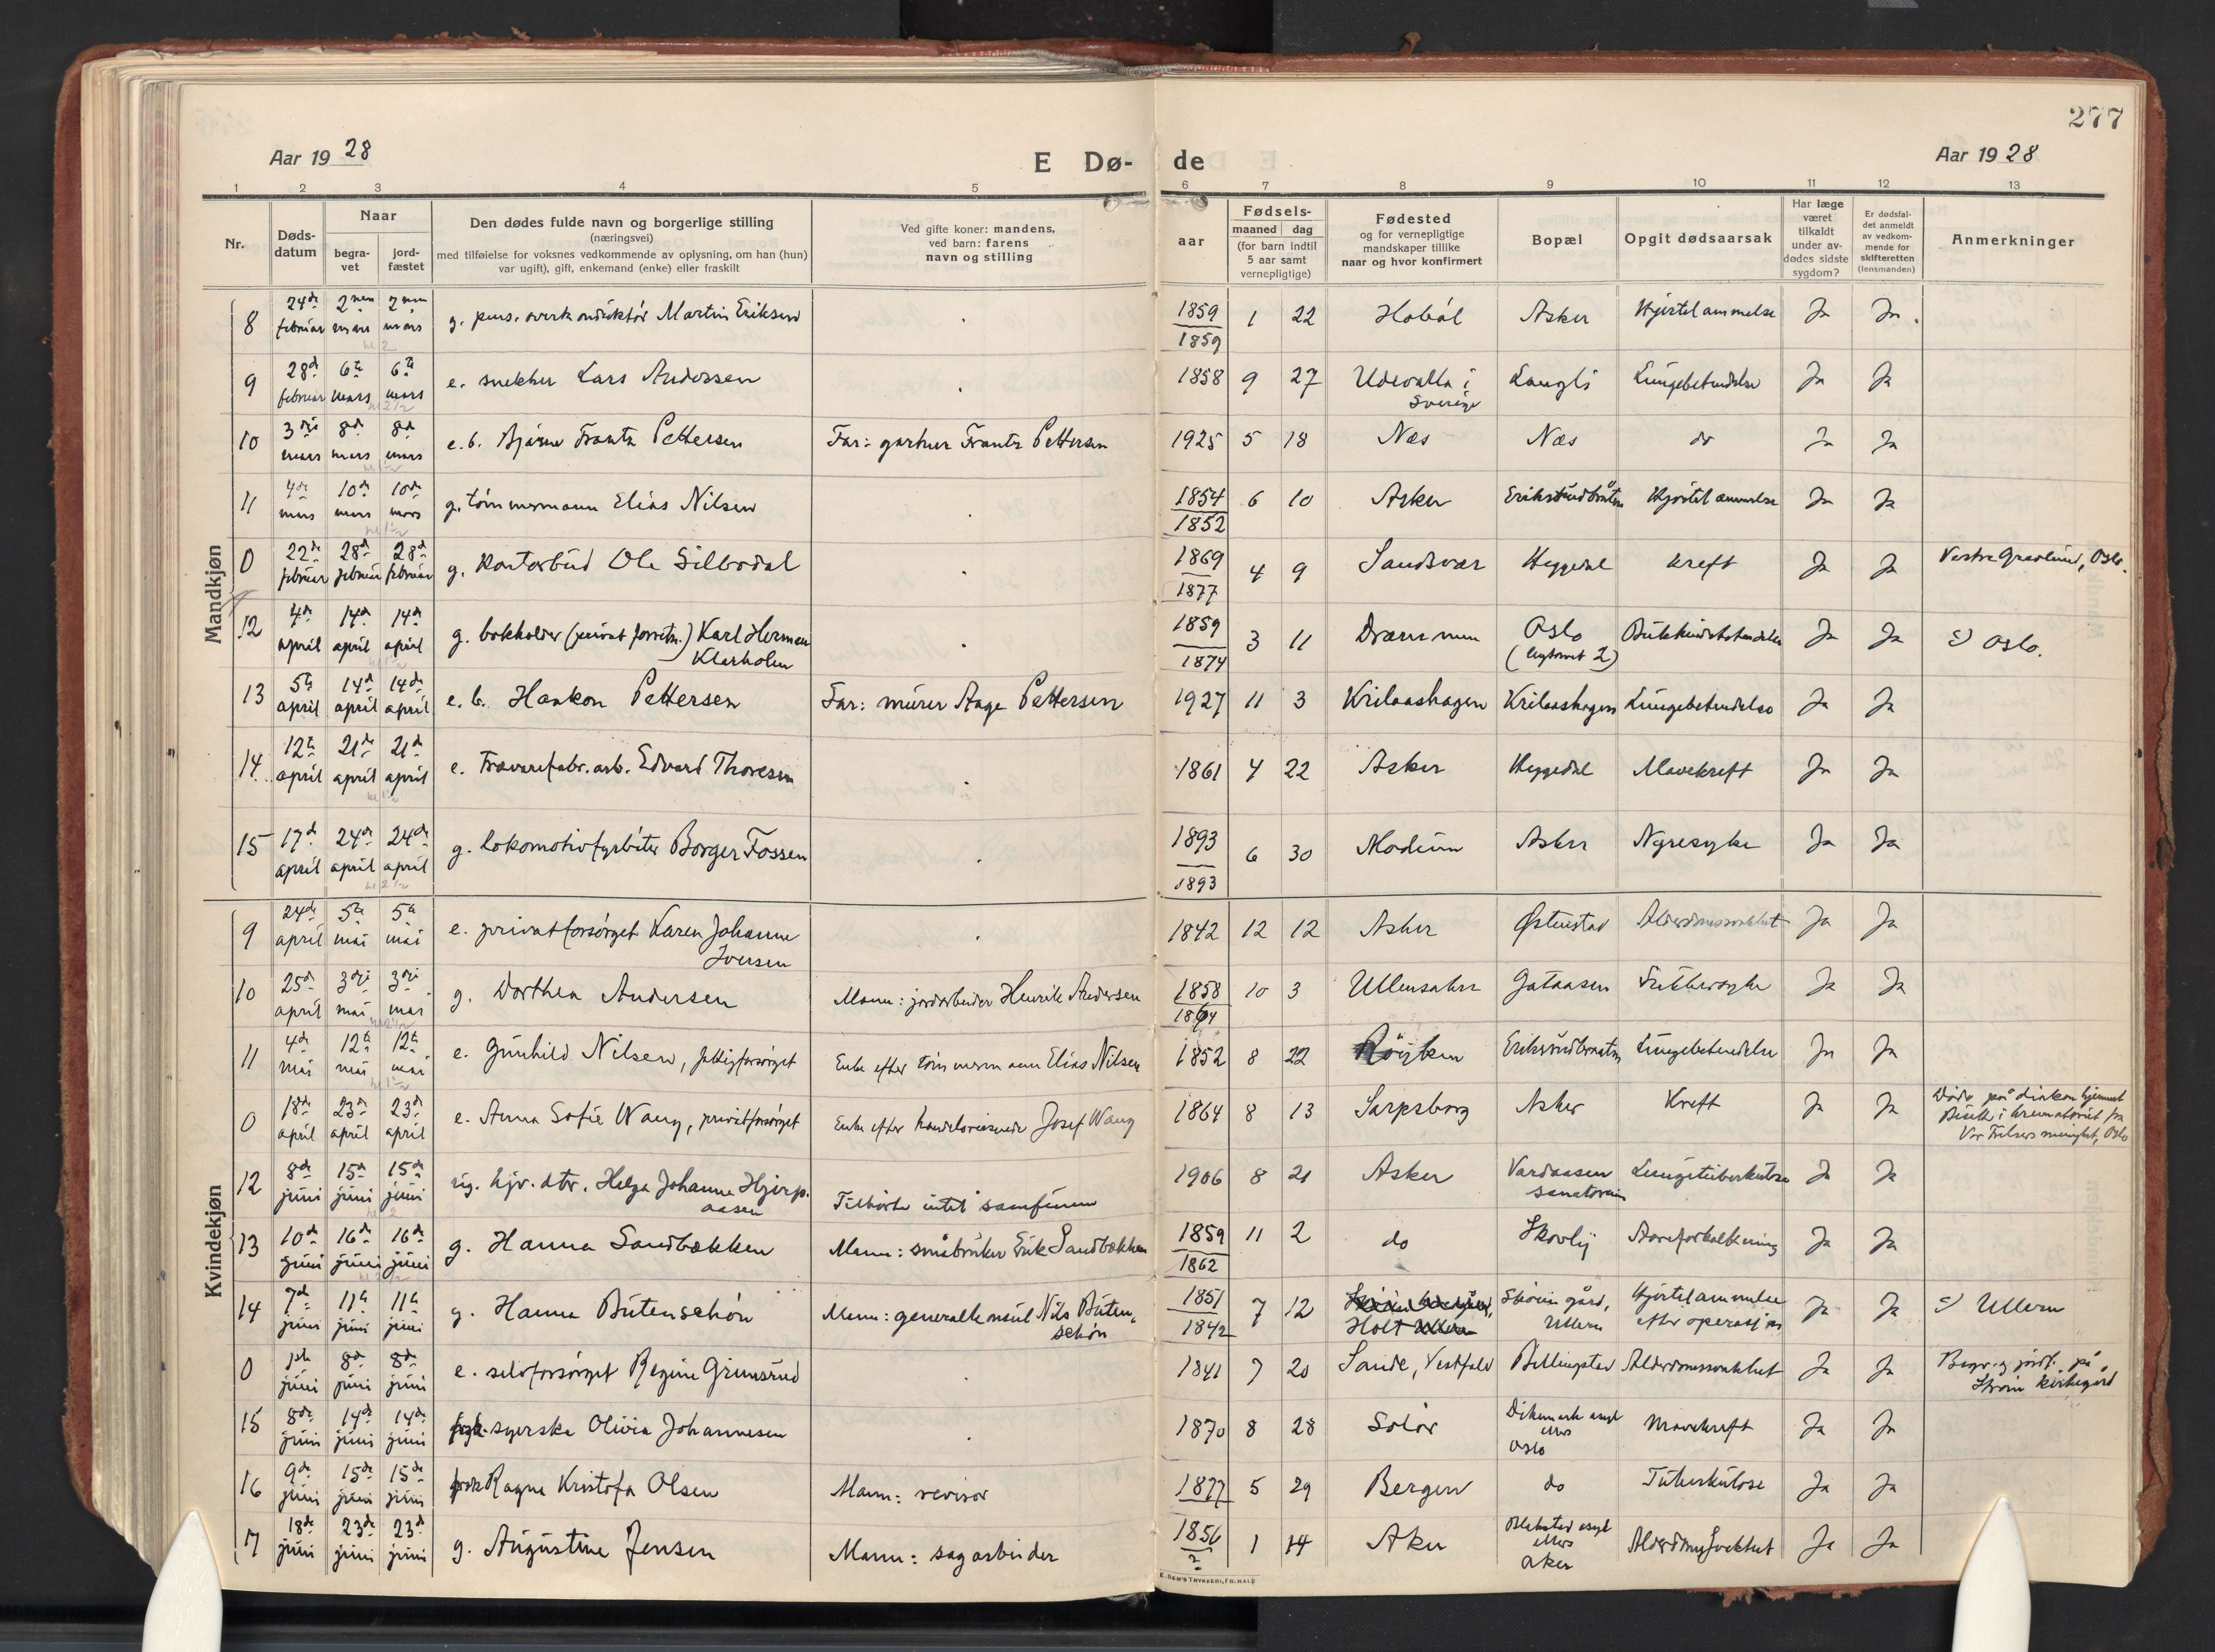 277
Aar 1928
E Dø-
de
Aar 1928
1 2 3 4 5 6 7 8 9 10 11 12 13
Nr.
Døds-
datum
Naar
begra-
vet
jord-
fæstet
Den dødes fulde navn og borgerlige stilling
(næringsvei)
med tilføielse for voksnes vedkommende av oplysning, om han (hun)
var ugift), gift, enkemand (enke) eller fraskilt
Ved gifte koner: mandens,
ved barn: farens
navn og stilling
aar
Fødsels-
maaned dag
(for barn indtil
5 aar samt
vernepligtige)
Fødested
og for vernepligtige
mandskaper tillike
naar og hvor konfirmert
Bopæl
Opgit dødsaarsak
Har læge
været
tilkaldt
under av-
dødes sidste
sygdom?
Er dødsfal-
det anmeldt
av vedkom-
mende for
skifteretten
(lensmanden)
Anmerkninger
Mandkjøn
8 24de februar 2nen mars 2nen mars g. pens. overkonduktör Martin Eriksen 1859 1859 1 22 Hobøl Asker Hjertelammelse Ja Ja
9 28de februar 6te mars 6te mars e. snekker Lars Andersen 1858 9 27 Udevalla i Sverige Langli Lungebetendelse Ja Ja
10 3dje mars 8de mars 8de mars e.b. Bjarne Frantz Pettersen Far: gartner Frantz Pettersen 1925 5 18 Næs Næs do Ja Ja
11 4de mars 10de mars 10de mars g. tömmermann Elias Nilsen 1854 1852 6 10 Asker Eriksrudbråten Hjertelammelse Ja Ja
0 22de februar 28de februar 28de februar g. Kontorbud Ole Silbodal 1869 1877 4 9 Sandsvær Heggedal Kreft Ja Ja Vestre Gravlund, Oslo.
12 4de april 14de april 14de april g. bokholder (privat forretn.) Karl Herman Klarholm 1859 1874 3 11 Drammen Oslo Ja Ja Oslo.
13 5te april 14de april 14de april e.b. Haakon Pettersen Far: murer Aage Pettersen 1927 11 3 Krilaashagen Krilaashagen Lungebetendelse Ja Ja
14 12te april 21de april 21de april e. Trævarefabr.arb. Edvard Thoresen 1861 4 22 Asker Heggedal Mavekreft Ja Ja
15 17de april 24de april 24de april g. Lokomotivfyrböter Borger Fossen 1893 1893 6 30 Modum Asker Nyresyke Ja Ja
Kvindekjøn
9 24de april 5te mai 5te mai e. privatforsörget Karen Johanne Iversen 1842 12 12 Asker Østenstad Alderdomssvakhet Ja Ja
10 25de april 3dje mai 3dje mai g. Dorthea Andersen Mann: jordarbeider Henrik Andersen 1858 1864 10 3 Ullensaker Gataasen Sukkersyke Ja Ja
11 4de mai 12te mai 12te mai e. Gunhild Nilsen, fattigforsörget Enke efter tömmermann Elias Nilsen 1852 8 22 Röyken Eriksrudbraaten Lungebetendelse Ja Ja
0 18de april 23de april 23de april e. Anna Sofie Wang, privatforsörget Enke efter handelsreisende Josef Wang 1864 8 13 Sarpsborg Asker Kreft Ja Ja Döde på diakonhjemmet Bisatt i krematoriet fra Vor Frelsers menighet, Oslo
12 8de juni 15de juni 15de juni ug. hjv. dtr. Helga Johanne Hjerpaasen Tilhörte intet samfunn 1906 8 21 Asker Vardaasen sanatorium Lungetuberkulose Ja Ja
13 10de juni 16de juni 16de juni g. Hanna Sandbækken Mann: småbruker Erik Sandbækken 1859 1862 11 2 do Skovly Aareforkalkning Ja Ja
14 7de juni 11te juni 11te juni g. Hanna Butenschön Mann: generalkonsul Nils Butenschön 1851 1842 7 12 Holt Sköien gård, Ullern Hjertelammelse efter operasjon Ja Ja Ullern
0 1ste juni 8de juni 8de juni e. selvforsörget Regine Grimsrud 1841 7 20 Sande, Vestfold Billingstad Alderdomssvakhet Ja Ja Begr. og jordf. på kirkegård
15 8de juni 14de juni 14de juni syerske Olivia Johannesen 1870 8 28 Solör Dikemark asyl ellers Oslo Mavekreft Ja Ja
16 9de juni 15de juni 15de juni Ragna Kristofa Olsen Mann: revisor 1877 5 29 Bergen do Tuberkulose Ja Ja
17 18de juni 23de juni 23de juni g. Augustine Jensen Mann: sagarbeider 1856 ? 1 14 Aker asyl ellers Aker Alderdomssvakhet Ja Ja